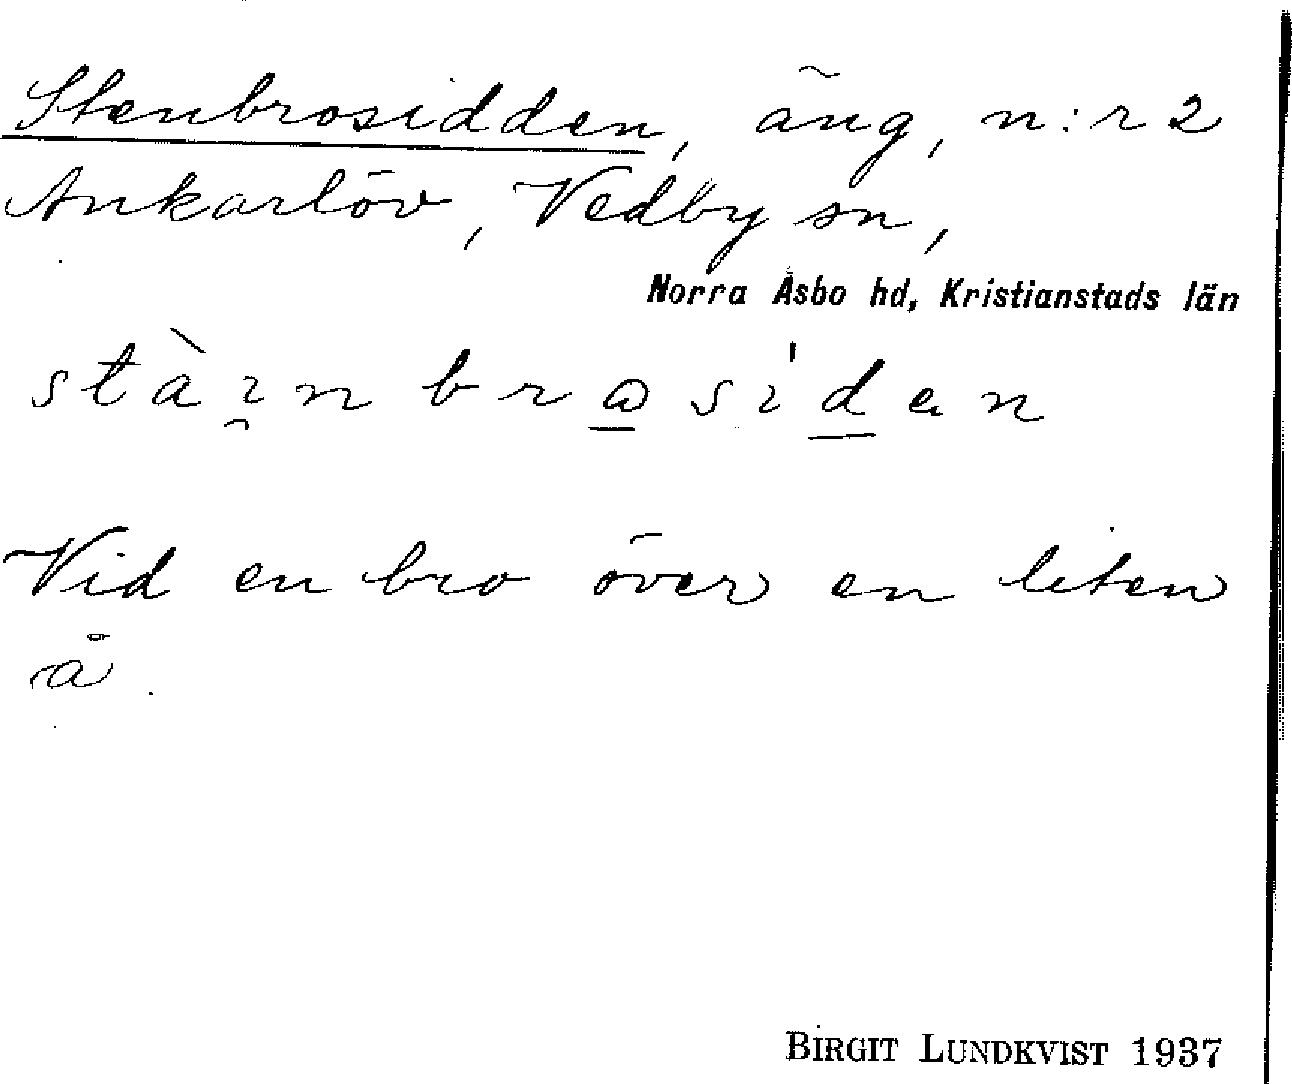 Stenbrosidden, äng, n:r 2
Ankarlöv, Vedby sn,
Norra Åsbo hd, Kristianstads län
stàı̯n brɷsı'dən
Vid en bro över en liten
å.
BIRGIT LUNDKVIST 1937